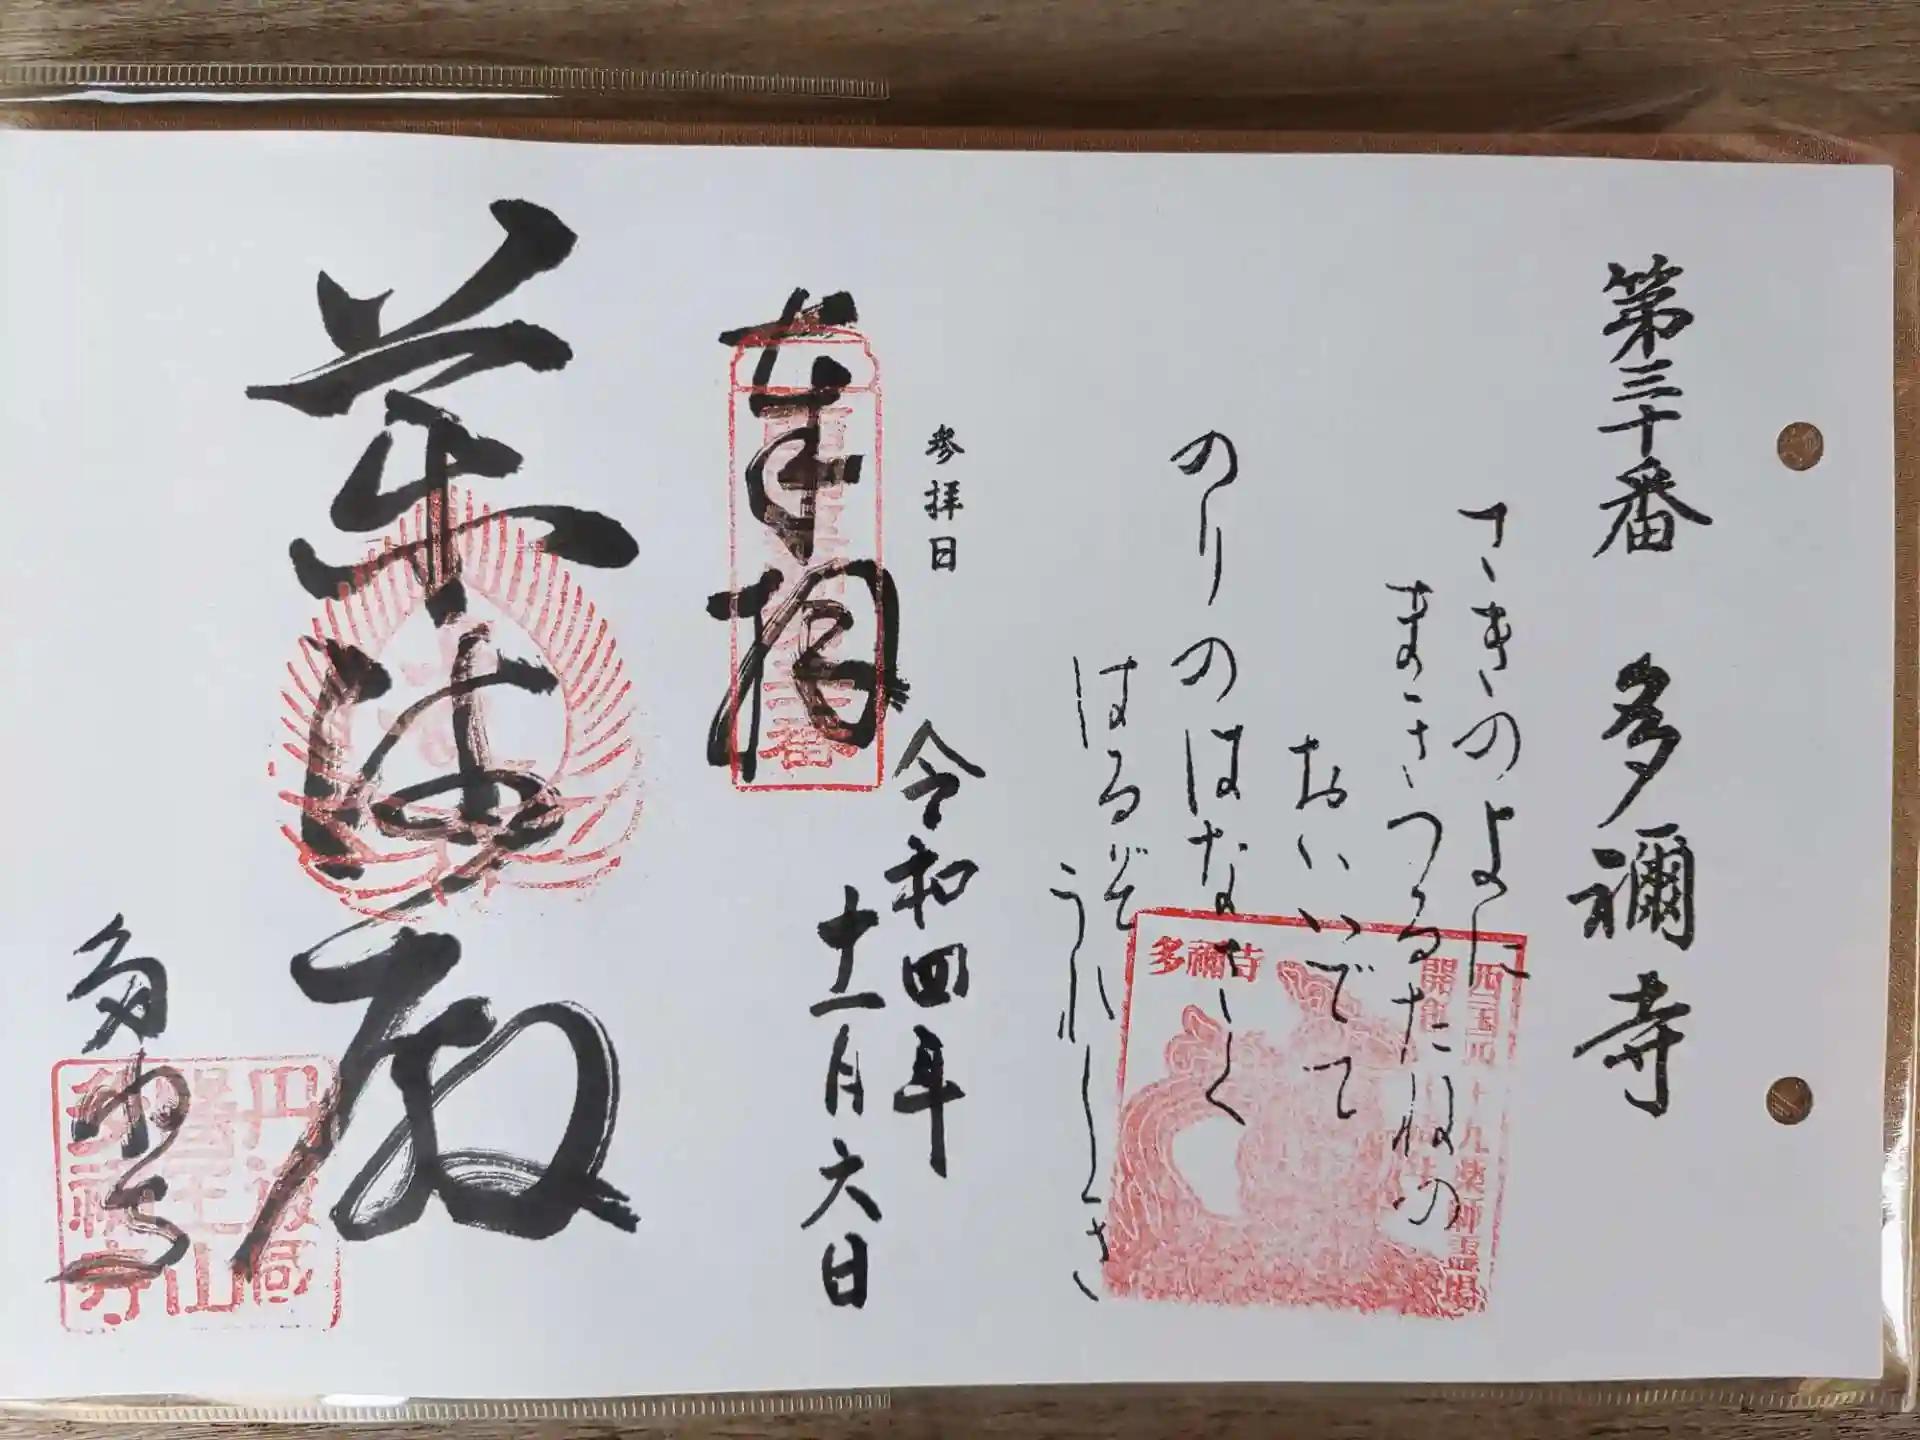 第三十番 多禰寺
さきのよに
まきつるたねの
おいいでて
のりのはなさく
はるぞうれしき
参拝日
令和四年
十一月六日
奉拝
薬師殿
多祢寺
多禰寺
西国四十九薬師霊場
開創
丹波國
醫王山
多禰寺